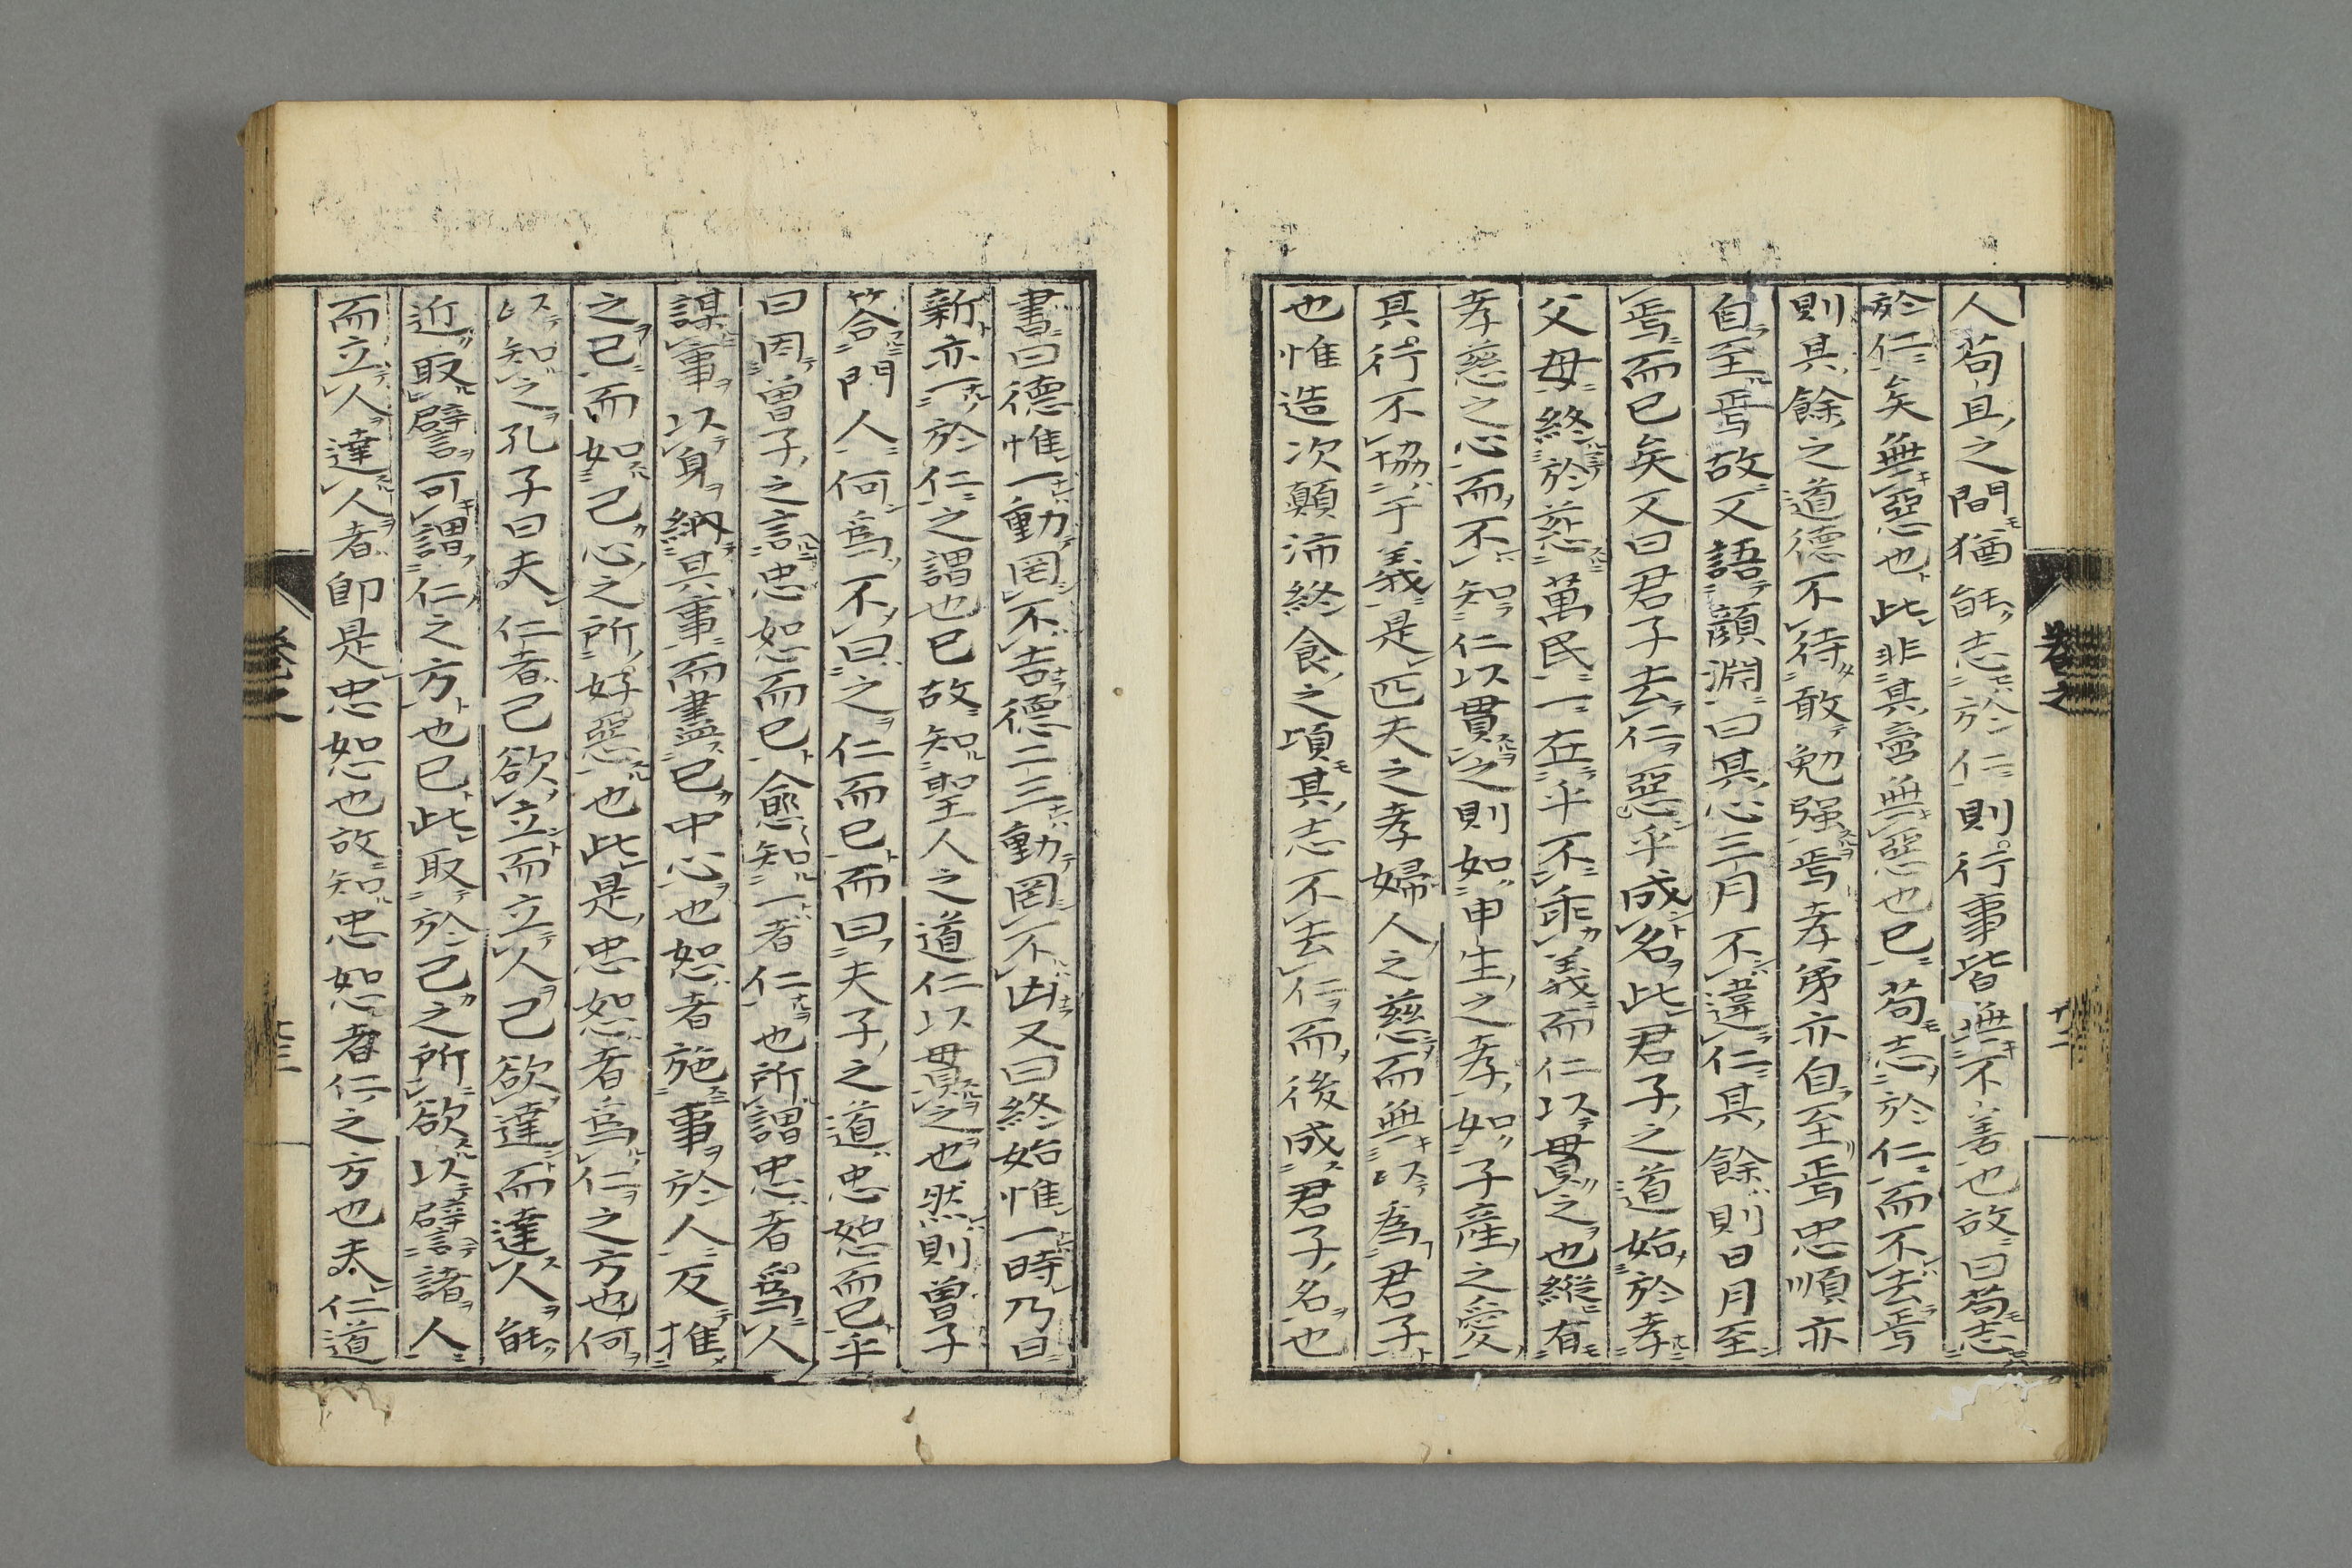 人苟且之間猶能志於仁則行事皆無不善也故曰苟志
於仁矣無惡也此非其啻無惡也已苟志於仁而不去焉
則其餘之道德不待敢勉强焉孝弟亦自至焉忠順亦
自至焉故又語顏淵曰其心三月不違仁其餘則日月至
焉而已矣又曰君子去仁惡乎成名此君子之道始於孝
父母終於慈萬民一在乎不乖義而仁以貫之也縱有
孝慈之心而不知仁以貫之則如申生之孝如子產之愛
其行不協于義是匹夫之孝婦人之慈而無以爲君子
也惟造次顛沛終食之頃其志不去仁而後成君子名也
書曰德惟一動罔不吉德二三動罔不凶又曰終始惟一時乃日
新亦一於仁之謂也已故知聖人之道仁以貫之也然則曽子
答門人何爲不曰之仁而已而曰夫子之道忠恕而已乎
曰因曽子之言忠恕而已愈知一者仁也所謂忠者爲人
謀事以身納其事而盡已中心也恕者施事於人反推
之已而如己心之所好惡也此是忠恕者爲仁之方也何
以知之孔子曰夫仁者己欲立而立人己欲達而達人能
近取譬可謂仁之方也已此取於己之所欲以譬諸人
而立人達人者卽是忠恕也故知忠恕者仁之方也夫仁道